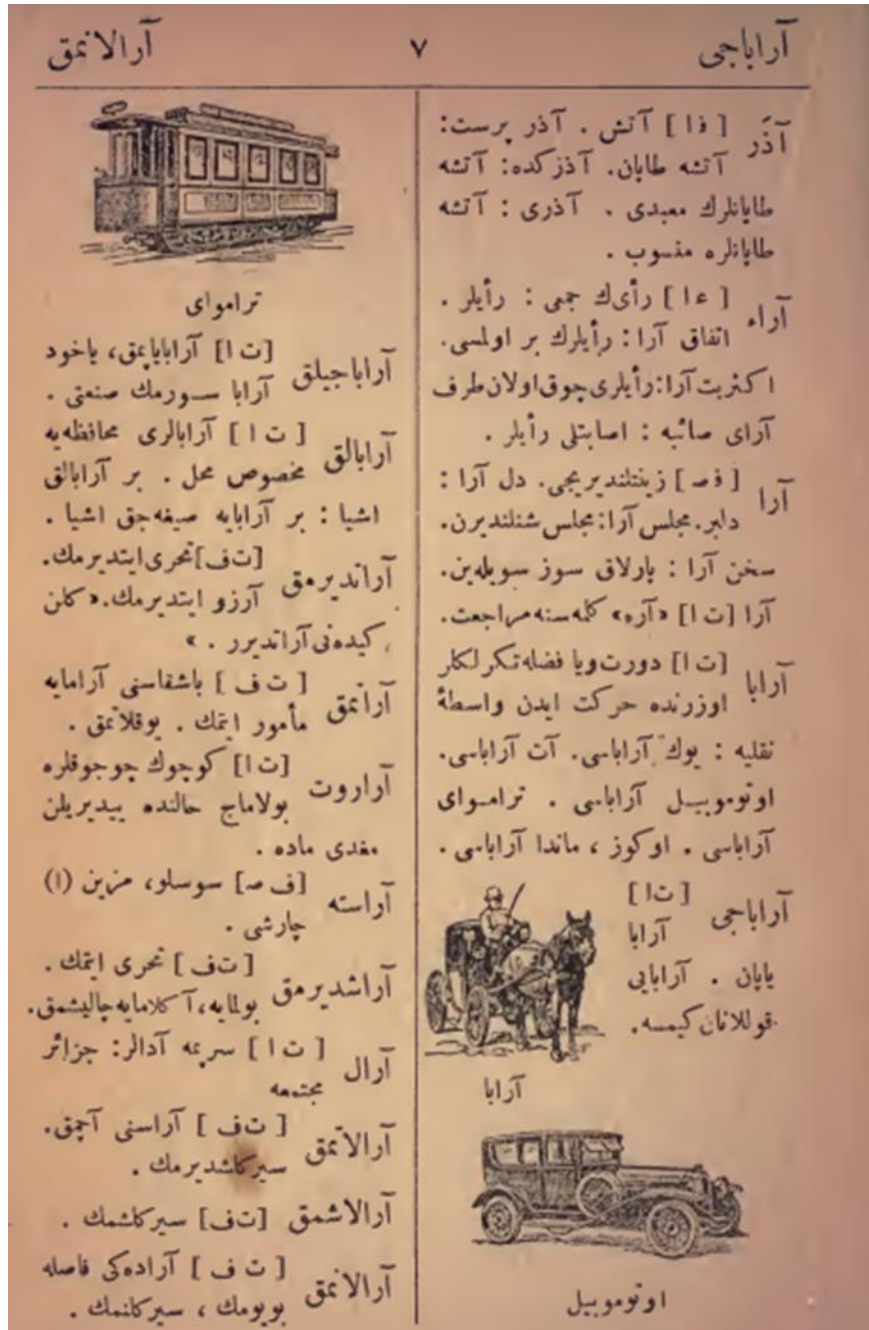 آراباجی
٧
آرالانمق
آذَر [ فا ] آتش . آذر پرست:
آتشه طاپان. آذرکده: آتشه
طاپانلرك معبدی . آذری : آتشه
طاپانلره منسوب .
آراء [ عا ] رأیك جمعی : رأیلر .
اتفاق آرا : رأیلرك بر اولمسی.
اکثریت آرا: رأیلری چوق اولان طرف
آرای صائبه : اصابتلی رأیلر .
آرا [ فص ] زینتلندیریجی. دل آرا :
دلبر. مجلس آرا: مجلس شنلندیرن.
سخن آرا : پارلاق سوز سویله‌ین.
آرا [ت ا] «آره» کلمه سنه مراجعت.
آرابا [ت ا] دورت ویا فضله تکرلکلر
اوزرنده حرکت ایدن واسطهٔ
نقلیه : یوك آراباسی. آت آراباسی.
اوتوموبیل آراباسی . تراموای
آراباسی . اوکوز ، ماندا آراباسی .
آراباجی [ ت ا ]
آرابا
یاپان . آرابایی
قوللانان کیمسه.
آرابا
اوتوموبیل
تراموای
آراباجیلق [ت ا] آراباياپمق، یاخود
آرابا سورمك صنعتی .
آرابالق [ ت ا ] آرابالری محافظه‌یه
مخصوص محل . بر آرابالق
اشیا : بر آرابایه صیغه‌جق اشیا .
آراندیرمق [ت ف] تحری ایتدیرمك.
آرزو ایتدیرمك. «کلن
کیده‌نی آراندیرر . »
آراتمق [ ت ف ] باشقاسنی آرامایه
مأمور ایتمك . یوقلاتمق .
آراروت [ت ا] کوچوك چوجوقلره
بولاماج حالنده ییدیریلن
مغدی ماده .
آراسته [ف ص] سوسلو، مزین (ا)
چارشی .
آراشدیرمق [ ت ف ] تحری ایتمك .
بولمایه، آکلامایه چالیشمق.
آرال [ ت ا ] سرپمه آدالر: جزائر
مجتمعه
آرالاتمق [ ت ف ] آراسنی آچمق.
سیرکلشدیرمك .
آرالاشمق [ت ف] سیرکلشمك .
آرالانمق [ ت ف ] آراده‌کی فاصله
بویومك ، سیرکلنمك .